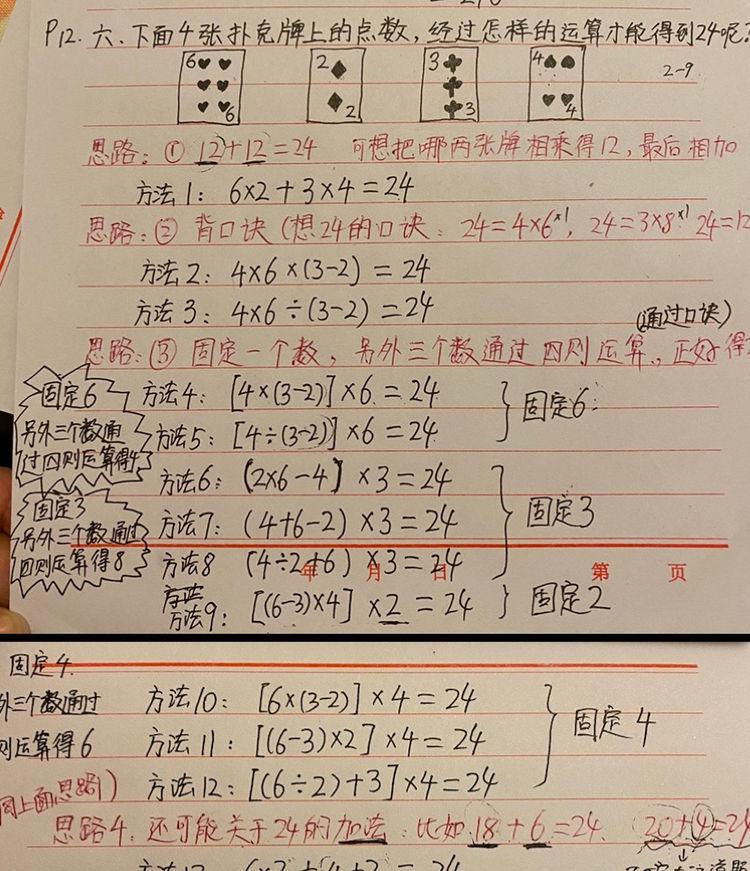 P12. 六、下面4张扑克牌上的点数，经过怎样的运算才能得到24呢？
6 2 3 4 2-9
9 2 3 4
思路：① 12+12=24 可想把哪两张牌相乘得12，最后相加
方法1：6×2+3×4=24
思路：② 背口诀（想24的口诀：24=4×6×1，24=3×8×1 24=12
方法2：4×6×(3-2)=24
方法3：4×6÷(3-2)=24
（通过口诀）
思路：③ 固定一个数，另外三个数通过四则运算，正好得
固定6 方法4：[4×(3-2)]×6=24
另外三个数通 方法5：[4÷(3-2)]×6=24 固定6：
过四则运算得4 方法6：(2×6-4)×3=24
固定3 方法7：(4+6-2)×3=24 固定3
另外三个数通过
四则运算得8 方法8 (4÷2+6)×3=24
年 月 日 第 页
方法9：[(6-3)×4]×2=24 固定2
固定4.
外三个数通过 方法10：[6×(3-2)]×4=24
则运算得6 方法11：[(6-3)×2]×4=24 固定4
同上面思路） 方法12：[(6÷2)+3]×4=24
思路4. 还可能关于24的加法 比如18+6=24. 20+4=24